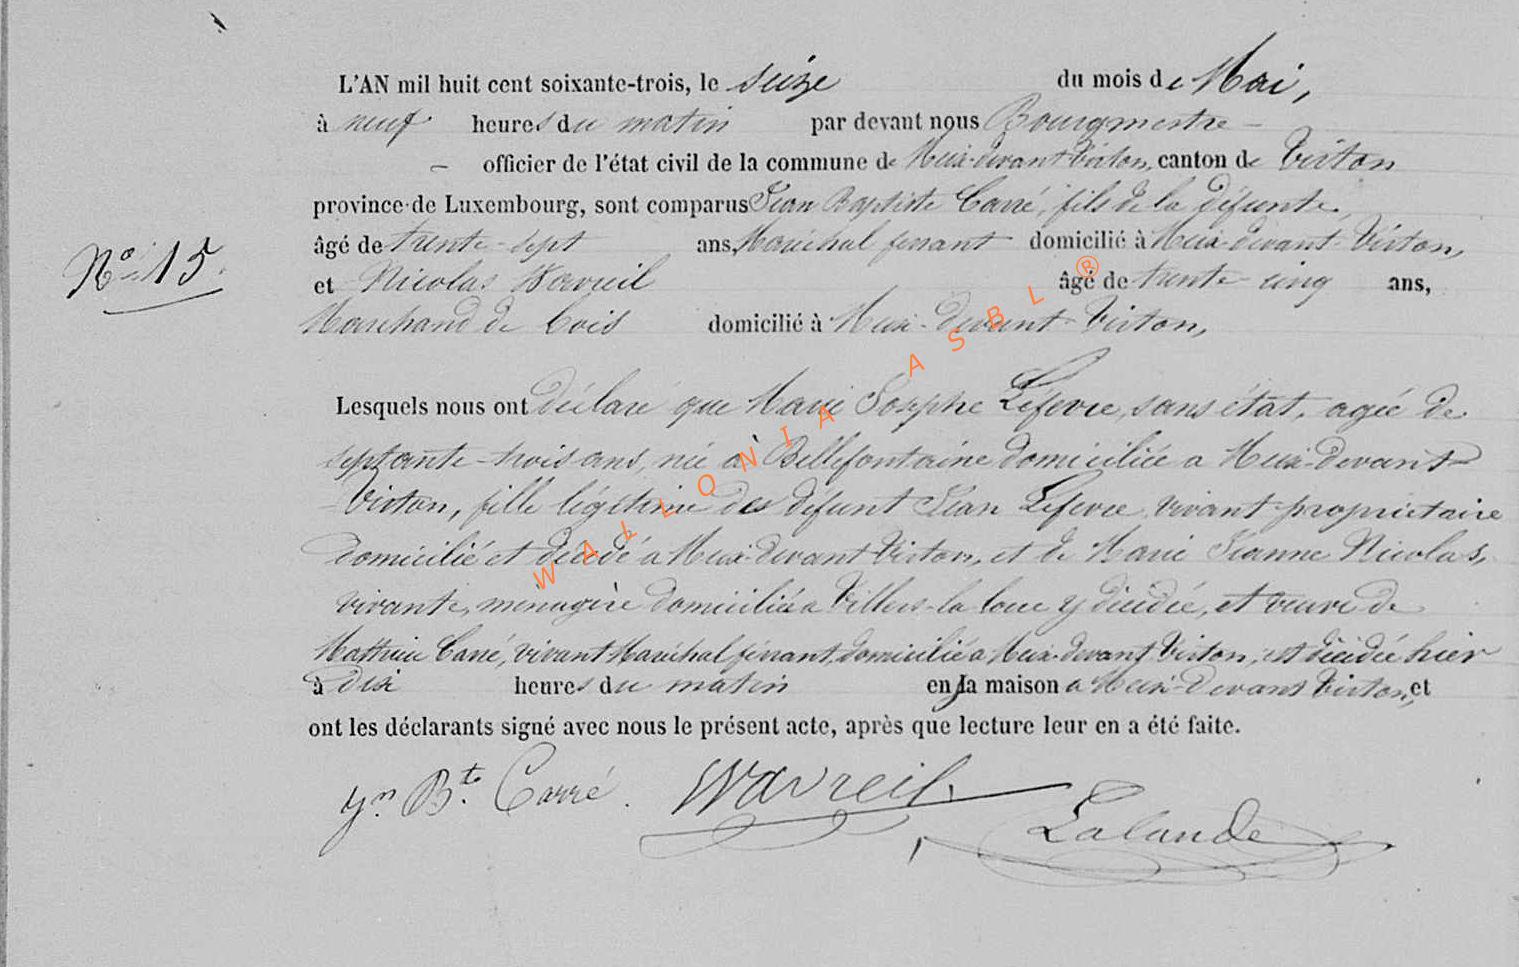 L'AN mil huit cent soixante-trois, le seize du mois de Mai,
à neuf heures du matin par devant nous Bourgmestre –
– officier de l'état civil de la commune de Meix-devant Virton, canton de Virton
province de Luxembourg, sont comparus Jean Baptiste Carré, fils de la défunte,
âgé de trente-sept ans, Maréchal ferrant domicilié à Meix-devant-Virton,
N° 15.
et Nicolas Wavreil âgé de trente-cinq ans,
Marchand de bois domicilié à Meix-devant-Virton,
Lesquels nous ont déclaré que Marie Josephe Lefevre, sans état, agée de
septante-trois ans, née à Bellefontaine domiciliée a Meix-devant-
Virton, fille légitime des défunt Jean Lefevre, vivant propriétaire
domicilié et décédé a Meix-devant Virton, et de Marie Jeanne Nicolas,
vivante, ménagère domiciliée a Villers-la-loue y décédée, et veuve de
Mathieu Carré, vivant Maréchal ferrant, domicilié a Meix-devant Virton, est décédée hier
à dix heures du matin en la maison a Meix-Devant Virton, et
ont les déclarants signé avec nous le présent acte, après que lecture leur en a été faite.
Jn Bte Carré. Wavreil. Lalande
WALLONIA ASBL ®